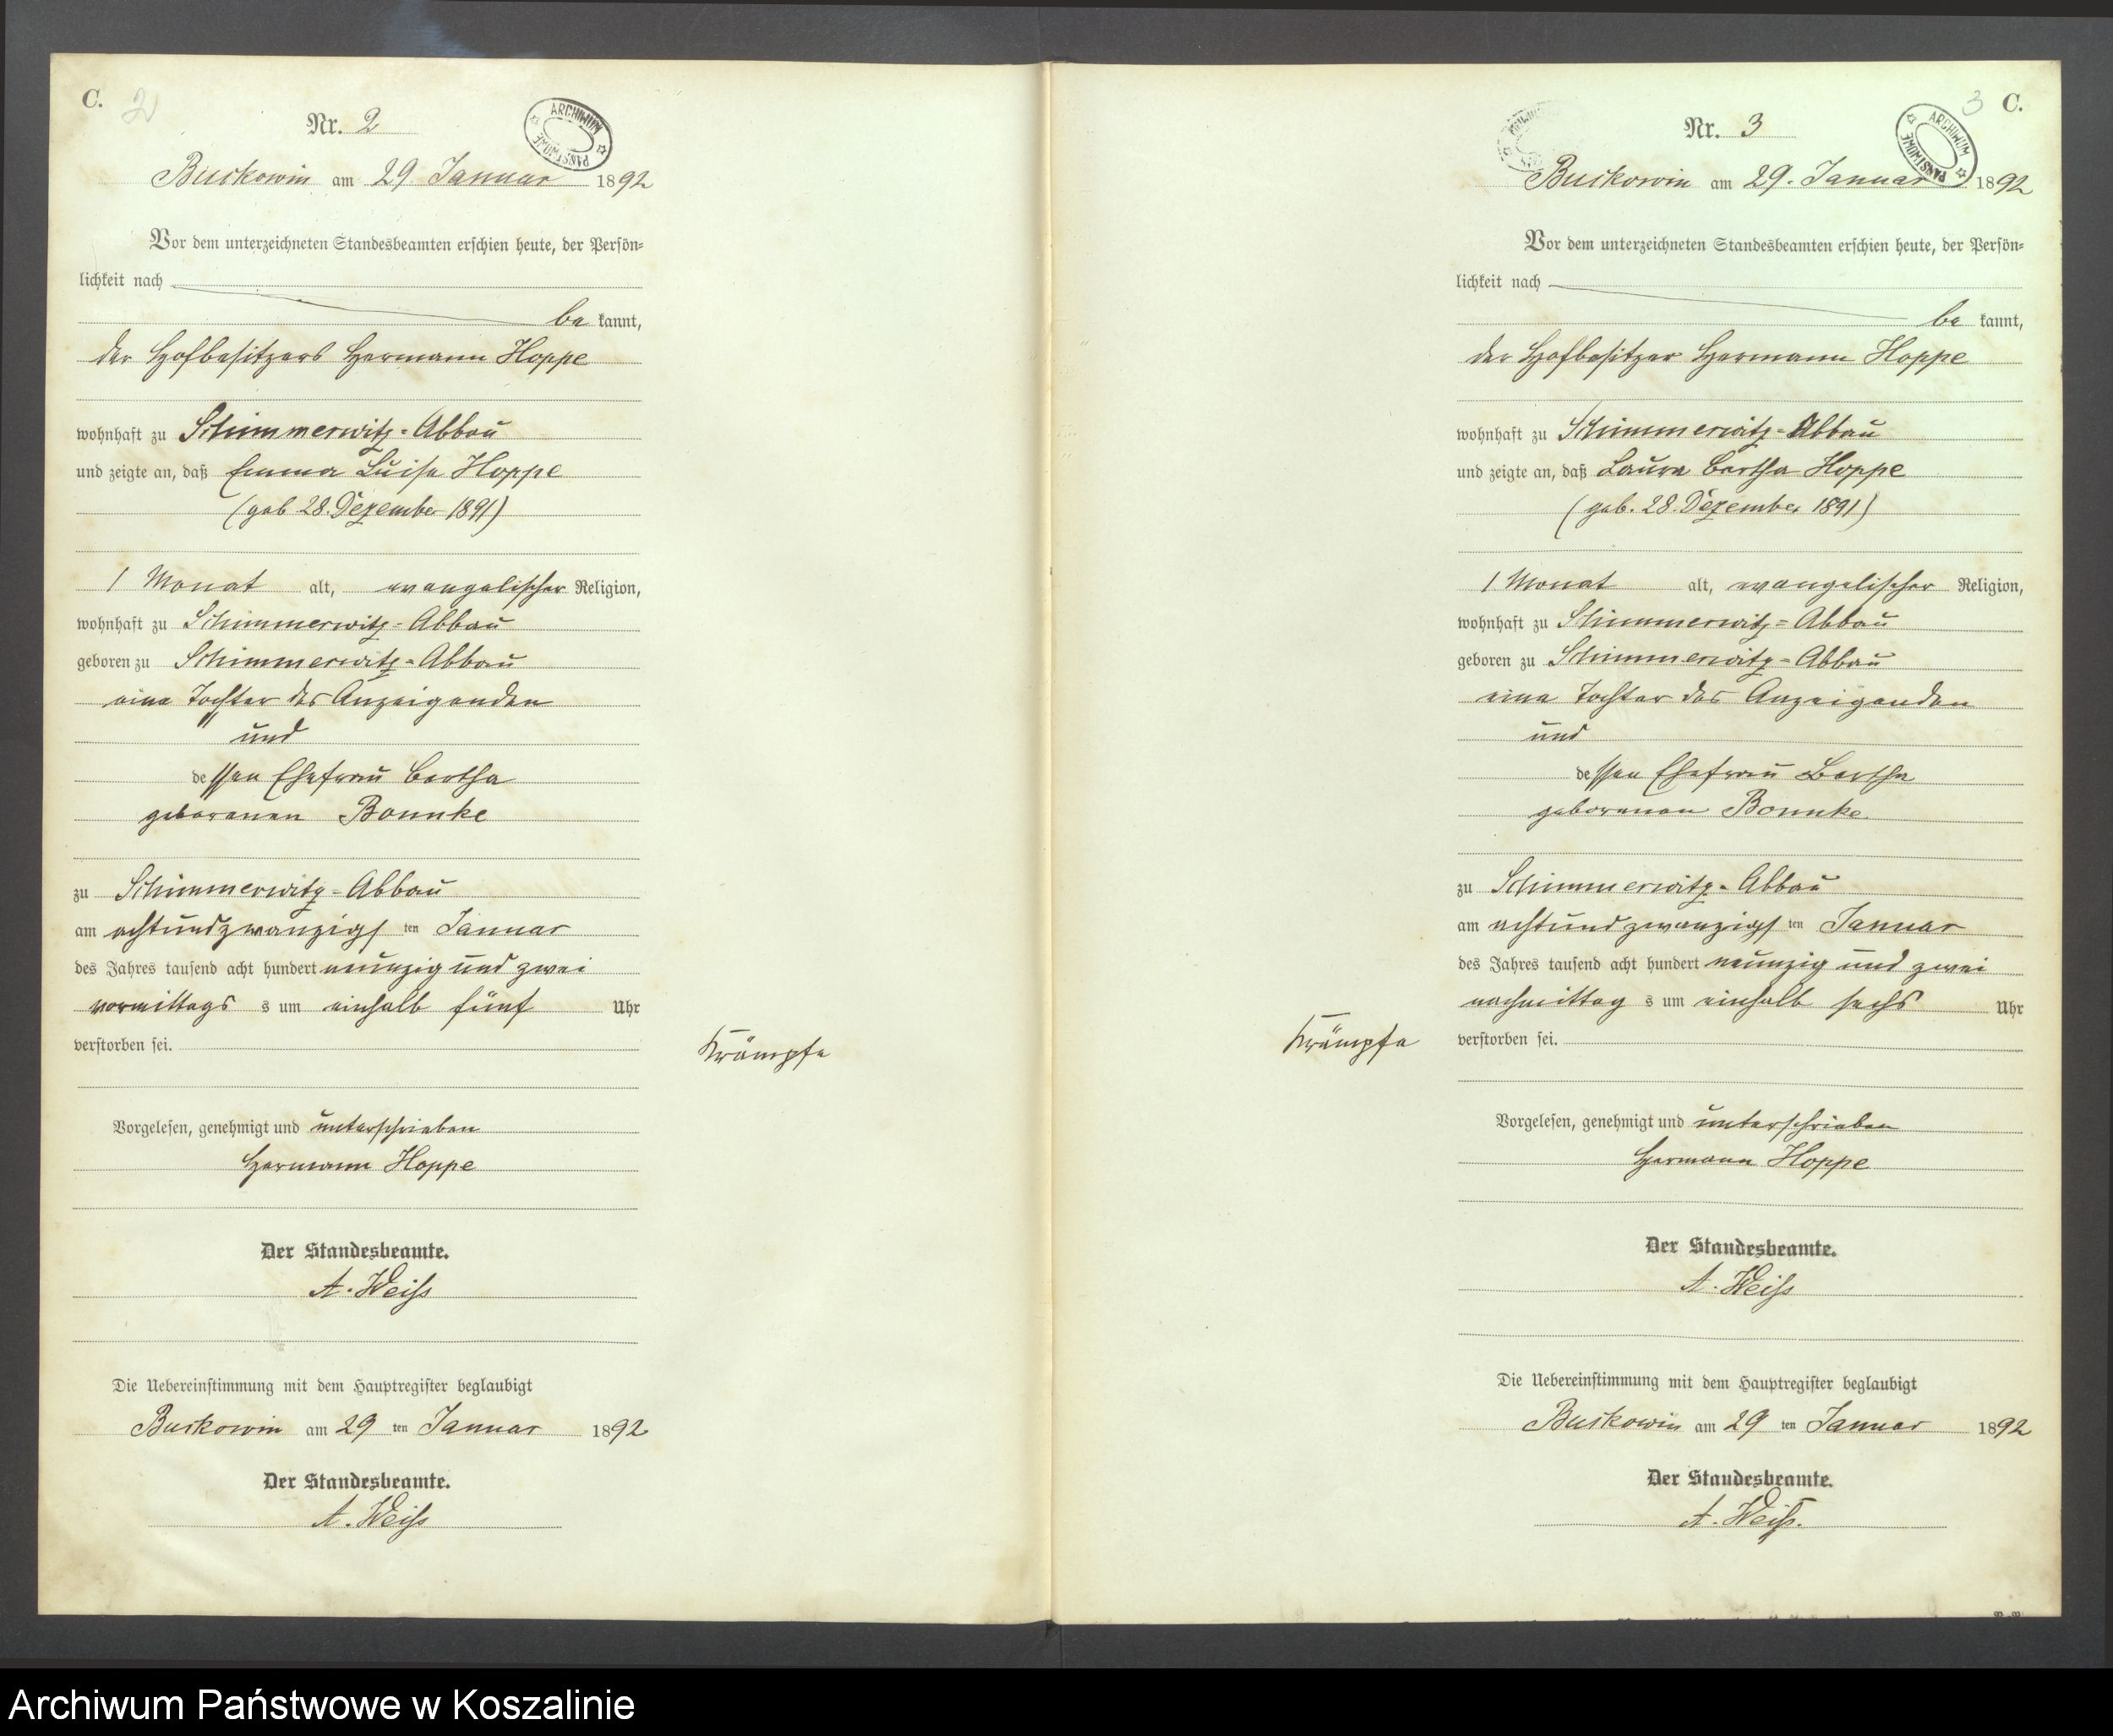 C.
2
Nr. 2
ARCHIWUM PAŃSTWOWE
Buckowin am 29. Januar 1892
Vor dem unterzeichneten Standesbeamten erschien heute, der Persön=
lichkeit nach
be kannt,
der Hofbesitzers Hermann Hoppe
wohnhaft zu Schimmerwitz-Abbau
und zeigte an, daß Emma Luise Hoppe
(geb 28. Dezember 1891)
1 Monat alt, evangelischer Religion,
wohnhaft zu Schimmerwitz-Abbau
geboren zu Schimmerwitz-Abbau
eine Tochter des Anzeigenden
und
dessen Ehefrau Bertha
geborenen Bonnke
zu Schimmerwitz-Abbau
am achtundzwanzigsten Januar
des Jahres tausend acht hundert neunzig und zwei
vormittags s um einhalb fünf Uhr
verstorben sei.
Krämpfe
Vorgelesen, genehmigt und unterschrieben
Hermann Hoppe
Der Standesbeamte.
A. Weiß
Die Uebereinstimmung mit dem Hauptregister beglaubigt
Buckowin am 29 ten Januar 1892
Der Standesbeamte.
A. Weiß
3 C.
Nr. 3
ARCHIWUM PAŃSTWOWE
Buckowin am 29. Januar 1892
Vor dem unterzeichneten Standesbeamten erschien heute, der Persön=
lichkeit nach
be kannt,
der Hofbesitzer Hermann Hoppe
wohnhaft zu Schimmerwitz-Abbau
und zeigte an, daß Laura Bertha Hoppe
(geb. 28. Dezember 1891)
1 Monat alt, evangelischer Religion,
wohnhaft zu Schimmerwitz=Abbau
geboren zu Schimmerwitz-Abbau
eine Tochter des Anzeigenden
und
dessen Ehefrau Bertha
geborenen Bonnke
zu Schimmerwitz-Abbau
am achtundzwanzigsten Januar
des Jahres tausend acht hundert neunzig und zwei
nachmittag s um einhalb sechs Uhr
Krämpfe
verstorben sei.
Vorgelesen, genehmigt und unterschrieben
Hermann Hoppe
Der Standesbeamte.
A. Weiß
Die Uebereinstimmung mit dem Hauptregister beglaubigt
Buckowin am 29 ten Januar 1892
Der Standesbeamte.
A. Weiß.
Archiwum Państwowe w Koszalinie